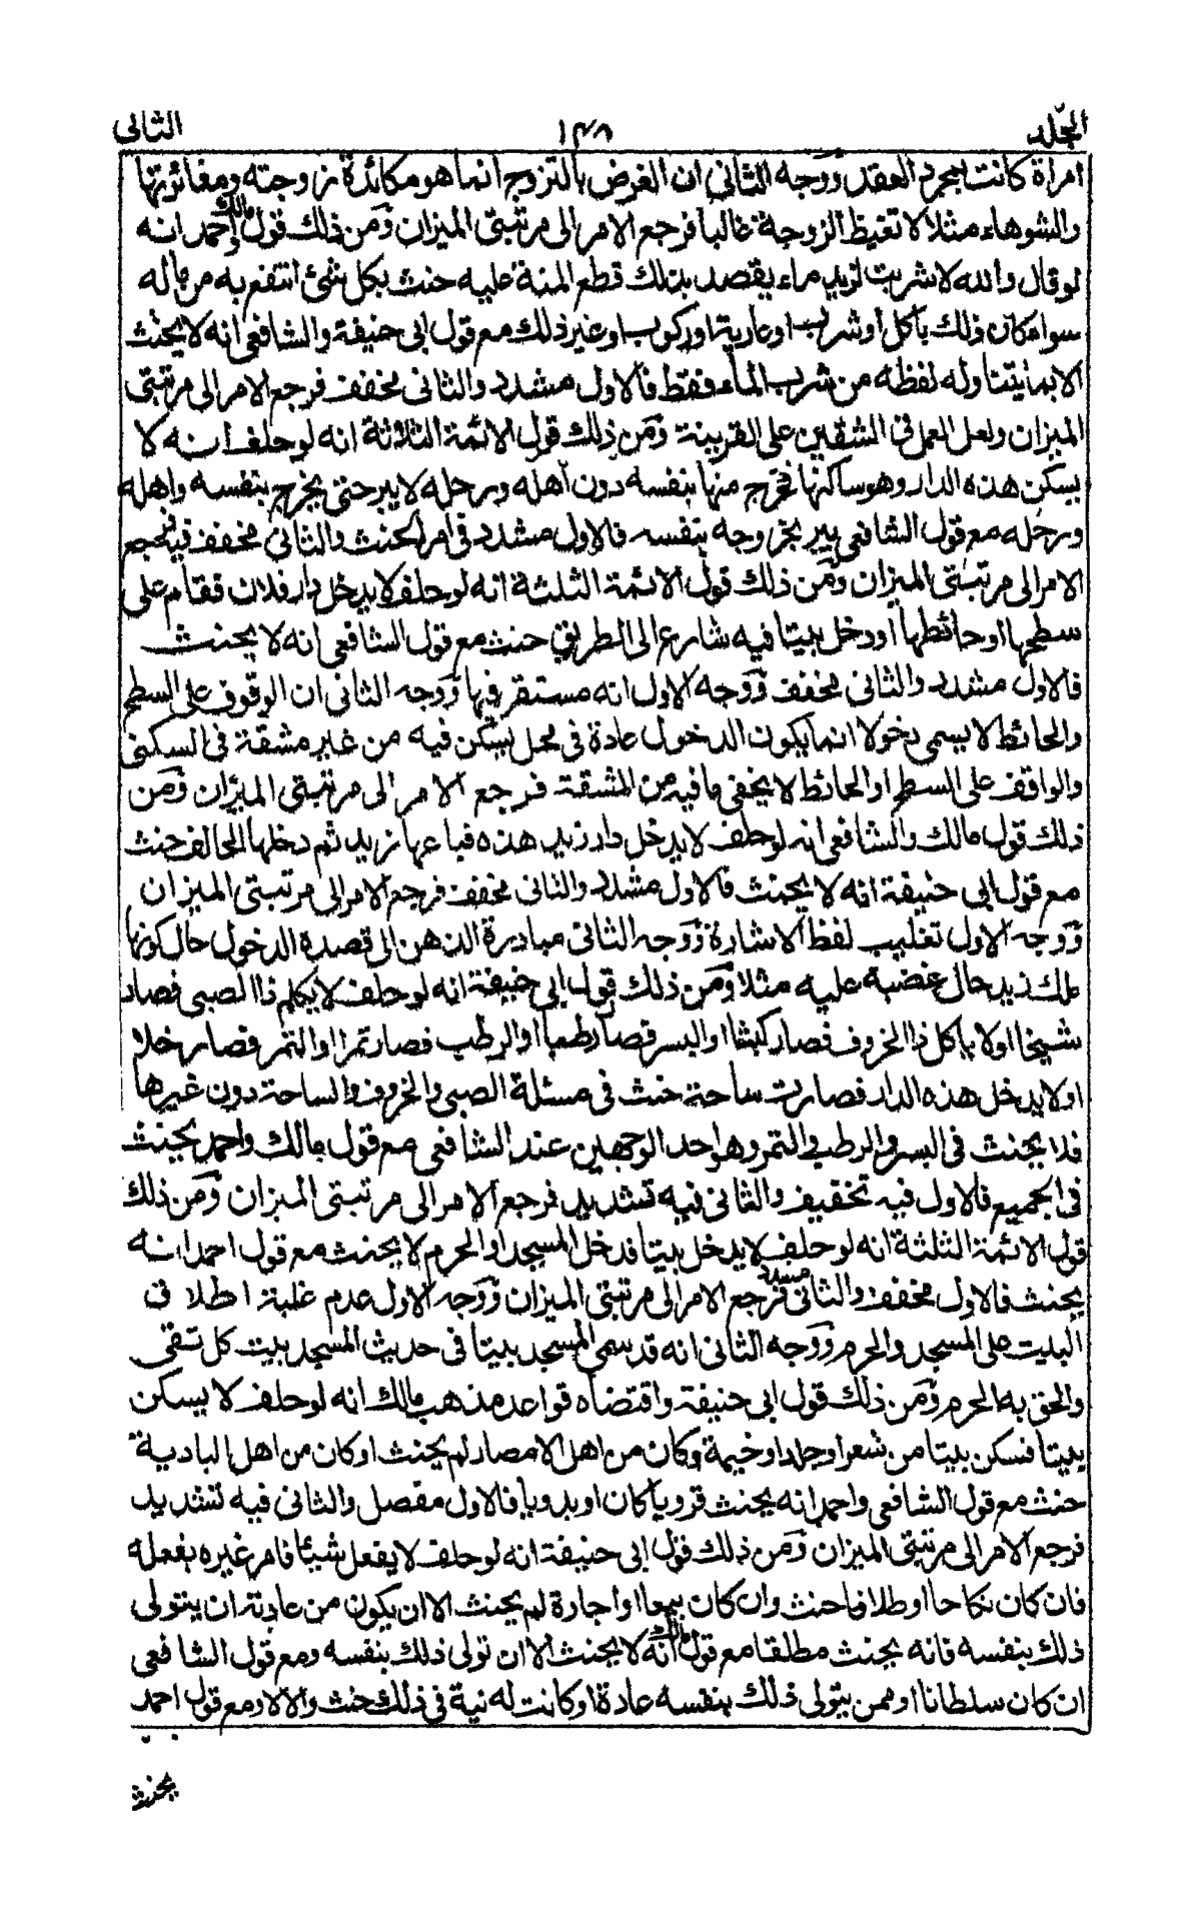 المجلد ١٣٨ الثانى
امرأة كانت بمجرد العقد ووجه الثانى ان الغرض بالتزوج انما هو مكائدة زوجته ومغائرتها
والشوهاء مثلا لا تغيظ الزوجة غالبا فرجع الامر الى مرتبتى الميزان ومن ذلك قول مالك واحمد انه
لو قال والله لا شربت لزيد ماء يقصد بذلك قطع المنة عليه حنث بكل شئ انتفع به من ماله
سواء كان ذلك باكل او شرب او عارية او ركوب او غير ذلك مع قول ابى حنيفة والشافعى انه لا يحنث
الا بما يتناوله لفظه من شرب الماء فقط فالاول مشدد والثانى مخفف فرجع الامر الى مرتبتى
الميزان ولعل العمل فى الشقين على القرينة ومن ذلك قول الائمة الثلاثة انه لو حلف انه لا
يسكن هذه الدار وهو ساكنها فخرج منها بنفسه دون اهله ورحله لا يبر حتى يخرج بنفسه واهله
ورحله مع قول الشافعى يبر بخروجه بنفسه فالاول مشدد فى امر الحنث والثانى مخفف فيه فرجع
الامر الى مرتبتى الميزان ومن ذلك قول الائمة الثلثة انه لو حلف لا يدخل دار فلان فقام على
سطحها او حائطها او دخل بيتا فيه شارع الى الطريق حنث مع قول الشافعى انه لا يحنث
فالاول مشدد والثانى مخفف ووجه الاول انه مستقر فيها ووجه الثانى ان الوقوف على السطح
والحائط لا يسمى دخولا انما يكون الدخول عادة فى محل يسكن فيه من غير مشقة فى السكنى
والواقف على السطح او الحائط لا يخفى ما فيه من المشقة فرجع الامر الى مرتبتى الميزان ومن
ذلك قول مالك والشافعى انه لو حلف لا يدخل دار زيد هذه فباعها زيد ثم دخلها الحالف حنث
مع قول ابى حنيفة انه لا يحنث فالاول مشدد والثانى مخفف فرجع الامر الى مرتبتى الميزان
ووجه الاول تغليب لفظ الاشارة ووجه الثانى مبادرة الذهن الى قصده الدخول حال كونها
ملك زيد حال غضبه عليه مثلا ومن ذلك قول ابى حنيفة انه لو حلف لا يكلم ذا الصبى فصار
شيخا او لا ياكل ذا الخروف فصار كبشا او البسر فصار رطبا او الرطب فصار تمرا او التمر فصار خلا
او لا يدخل هذه الدار فصارت ساحة حنث فى مسئلة الصبى والخروف والساحة دون غيرها
فلا يحنث فى البسر والرطب والتمر وهو احد الوجهين عند الشافعى مع قول مالك واحمد يحنث
فى الجميع فالاول فيه تخفيف والثانى فيه تشديد فرجع الامر الى مرتبتى الميزان ومن ذلك
قول الائمة الثلثة انه لو حلف لا يدخل بيتا فدخل المسجد او الحرم لا يحنث مع قول احمد انه
يحنث فالاول مخفف والثانى مشدد فرجع الامر الى مرتبتى الميزان ووجه الاول عدم غلبة اطلاق
البيت على المسجد والحرم ووجه الثانى انه قد سمى المسجد بيتا فى حديث المسجد بيت كل تقى
والحق به الحرم ومن ذلك قول ابى حنيفة واقتضاه قواعد مذهب مالك انه لو حلف لا يسكن
بيتا فسكن بيتا من شعر او جلد او خيمة وكان من اهل الامصار لم يحنث او كان من اهل البادية
حنث مع قول الشافعى واحمد انه يحنث قرويا كان او بدويا فالاول مفصل والثانى فيه تشديد
فرجع الامر الى مرتبتى الميزان ومن ذلك قول ابى حنيفة انه لو حلف لا يفعل شيئا فامر غيره بفعله
فان كان نكاحا او طلاقا حنث وان كان بيعا او اجارة لم يحنث الا ان يكون من عادته ان يتولى
ذلك بنفسه فانه يحنث مطلقا مع قول مالك انه لا يحنث الا ان تولى ذلك بنفسه ومع قول الشافعى
ان كان سلطانا او ممن يتولى ذلك بنفسه عادة او كانت له نية فى ذلك حنث والا لا ومع قول احمد
يحنث